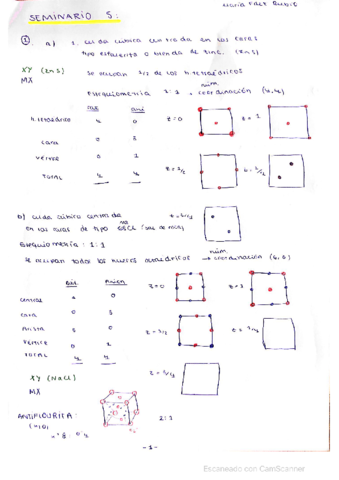 María Páez Rubio
SEMINARIO 5:
1. a) 1. celda cúbica centrada en las caras
tipo esfalerita o blenda de zinc. (ZnS)
XY (ZnS)
MX
Se ocupan 1/2 de los h. tetraédricos
Estequiometría 1:1 → núm. coordinación (4,4)
cat ani
h. tetraédrico 4 0
z=0
z=1
cara 0 3
vértice 0 1
TOTAL 4 4
z=1/2
b) celda cúbica centrada
en las caras de tipo (sal de roca)
Estequiometría: 1:1
Se ocupan todos los huecos octaédricos → núm. coordinación (6,6)
z=0
cara 0 3
arista 3 0
z=1/2
vértice 0 1
TOTAL 4 4
XY (NaCl)
MX
ANTIFLUORITA:
2:1
-1-
Escaneado con CamScanner